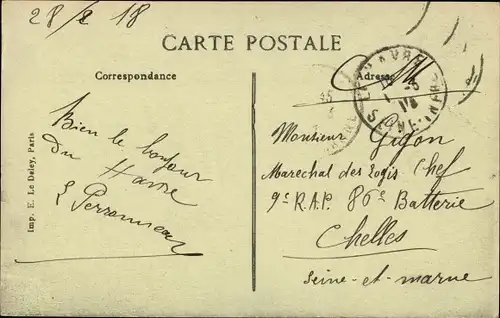 28/2 18
CARTE POSTALE
Correspondance
Adresse
LE HAVRE
Bien le bonjour
Du Havre
Perronneau
Monsieur Gigon
Marechal des logis Chef
9e R.A.P. 86e Batterie
Chelles
Seine-et-marne
Imp. E. Le Deley, Paris